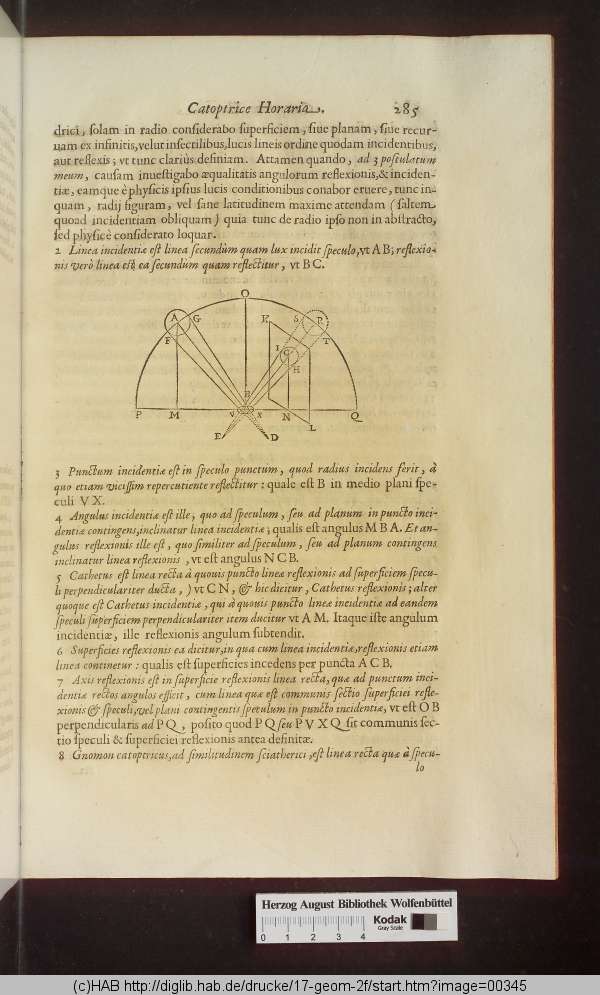 Catoptrice Horaria. 285
drici, ſolam in radio conſiderabo ſuperficiem, ſiue planam, ſiue recur-
uam ex infinitis, velut inſectilibus, lucis lineis ordine quodam incidentibus,
aut reflexis; vt tunc clariùs definiam. Attamen quando, ad 3 poſtulatum
meum, cauſam inueſtigabo æqualitatis angulorum reflexionis, & inciden-
tiæ, eamque è phyſicis ipſius lucis conditionibus conabor eruere, tunc in-
quam, radij figuram, vel ſane latitudinem maxime attendam (ſaltem
quoad incidentiam obliquam) quia tunc de radio ipſo non in abſtracto,
ſed phyſicè conſiderato loquar.
2 Linea incidentiæ eſt linea ſecundùm quam lux incidit ſpeculo, vt A B; reflexio-
nis verò linea eſt ea ſecundùm quam reflectitur, vt B C.
O
A G K S R
F I C T
H
B
P M V X N Q
L
E D
3 Punctum incidentiæ eſt in ſpeculo punctum, quod radius incidens ferit, à
quo etiam viciſſim repercutiente reflectitur: quale eſt B in medio plani ſpe-
culi V X.
4 Angulus incidentiæ eſt ille, quo ad ſpeculum, ſeu ad planum in puncto inci-
dentiæ contingens, inclinatur linea incidentiæ; qualis eſt angulus M B A. Et an-
gulus reflexionis ille eſt, quo ſimiliter ad ſpeculum, ſeu ad planum contingens
inclinatur linea reflexionis, vt eſt angulus N C B.
5 Cathetus eſt linea recta à quouis puncto lineæ reflexionis ad ſuperficiem ſpecu-
li perpendiculariter ducta, ) vt C N, & hic dicitur, Cathetus reflexionis; alter
quoque eſt Cathetus incidentiæ, qui à quouis puncto lineæ incidentiæ ad eandem
ſpeculi ſuperficiem perpendiculariter item ducitur vt A M. Itaque iſte angulum
incidentiæ, ille reflexionis angulum ſubtendit.
6 Superficies reflexionis ea dicitur, in qua cum linea incidentiæ, reflexionis etiam
linea continetur: qualis eſt ſuperficies incedens per puncta A C B.
7 Axis reflexionis eſt in ſuperficie reflexionis linea recta, quæ ad punctum inci-
dentiæ rectos angulos efficit, cum linea quæ eſt communis ſectio ſuperficiei refle-
xionis & ſpeculi, vel plani contingentis ſpeculum in puncto incidentiæ, vt eſt O B
perpendicularis ad P Q, poſito quod P Q ſeu P V X Q ſit communis ſec-
tio ſpeculi & ſuperficiei reflexionis antea definitæ.
8 Gnomon catoptricus, ad ſimilitudinem ſciatherici, eſt linea recta quæ à ſpecu-
lo
Herzog August Bibliothek Wolfenbüttel
Kodak
Gray Scale
0 1 2 3 4
(c)HAB http://diglib.hab.de/drucke/17-geom-2f/start.htm?image=00345